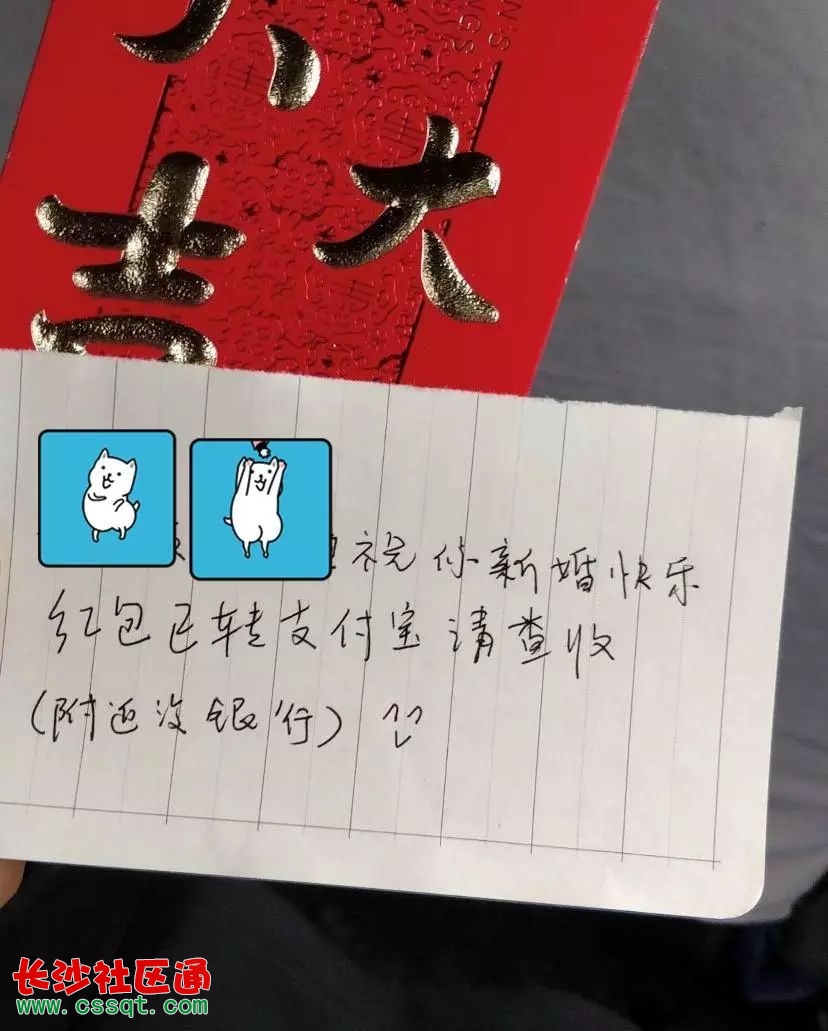 大
吉
祝你新婚快乐
红包已转支付宝请查收
(附近没银行)
长沙社区通
www.cssqt.com